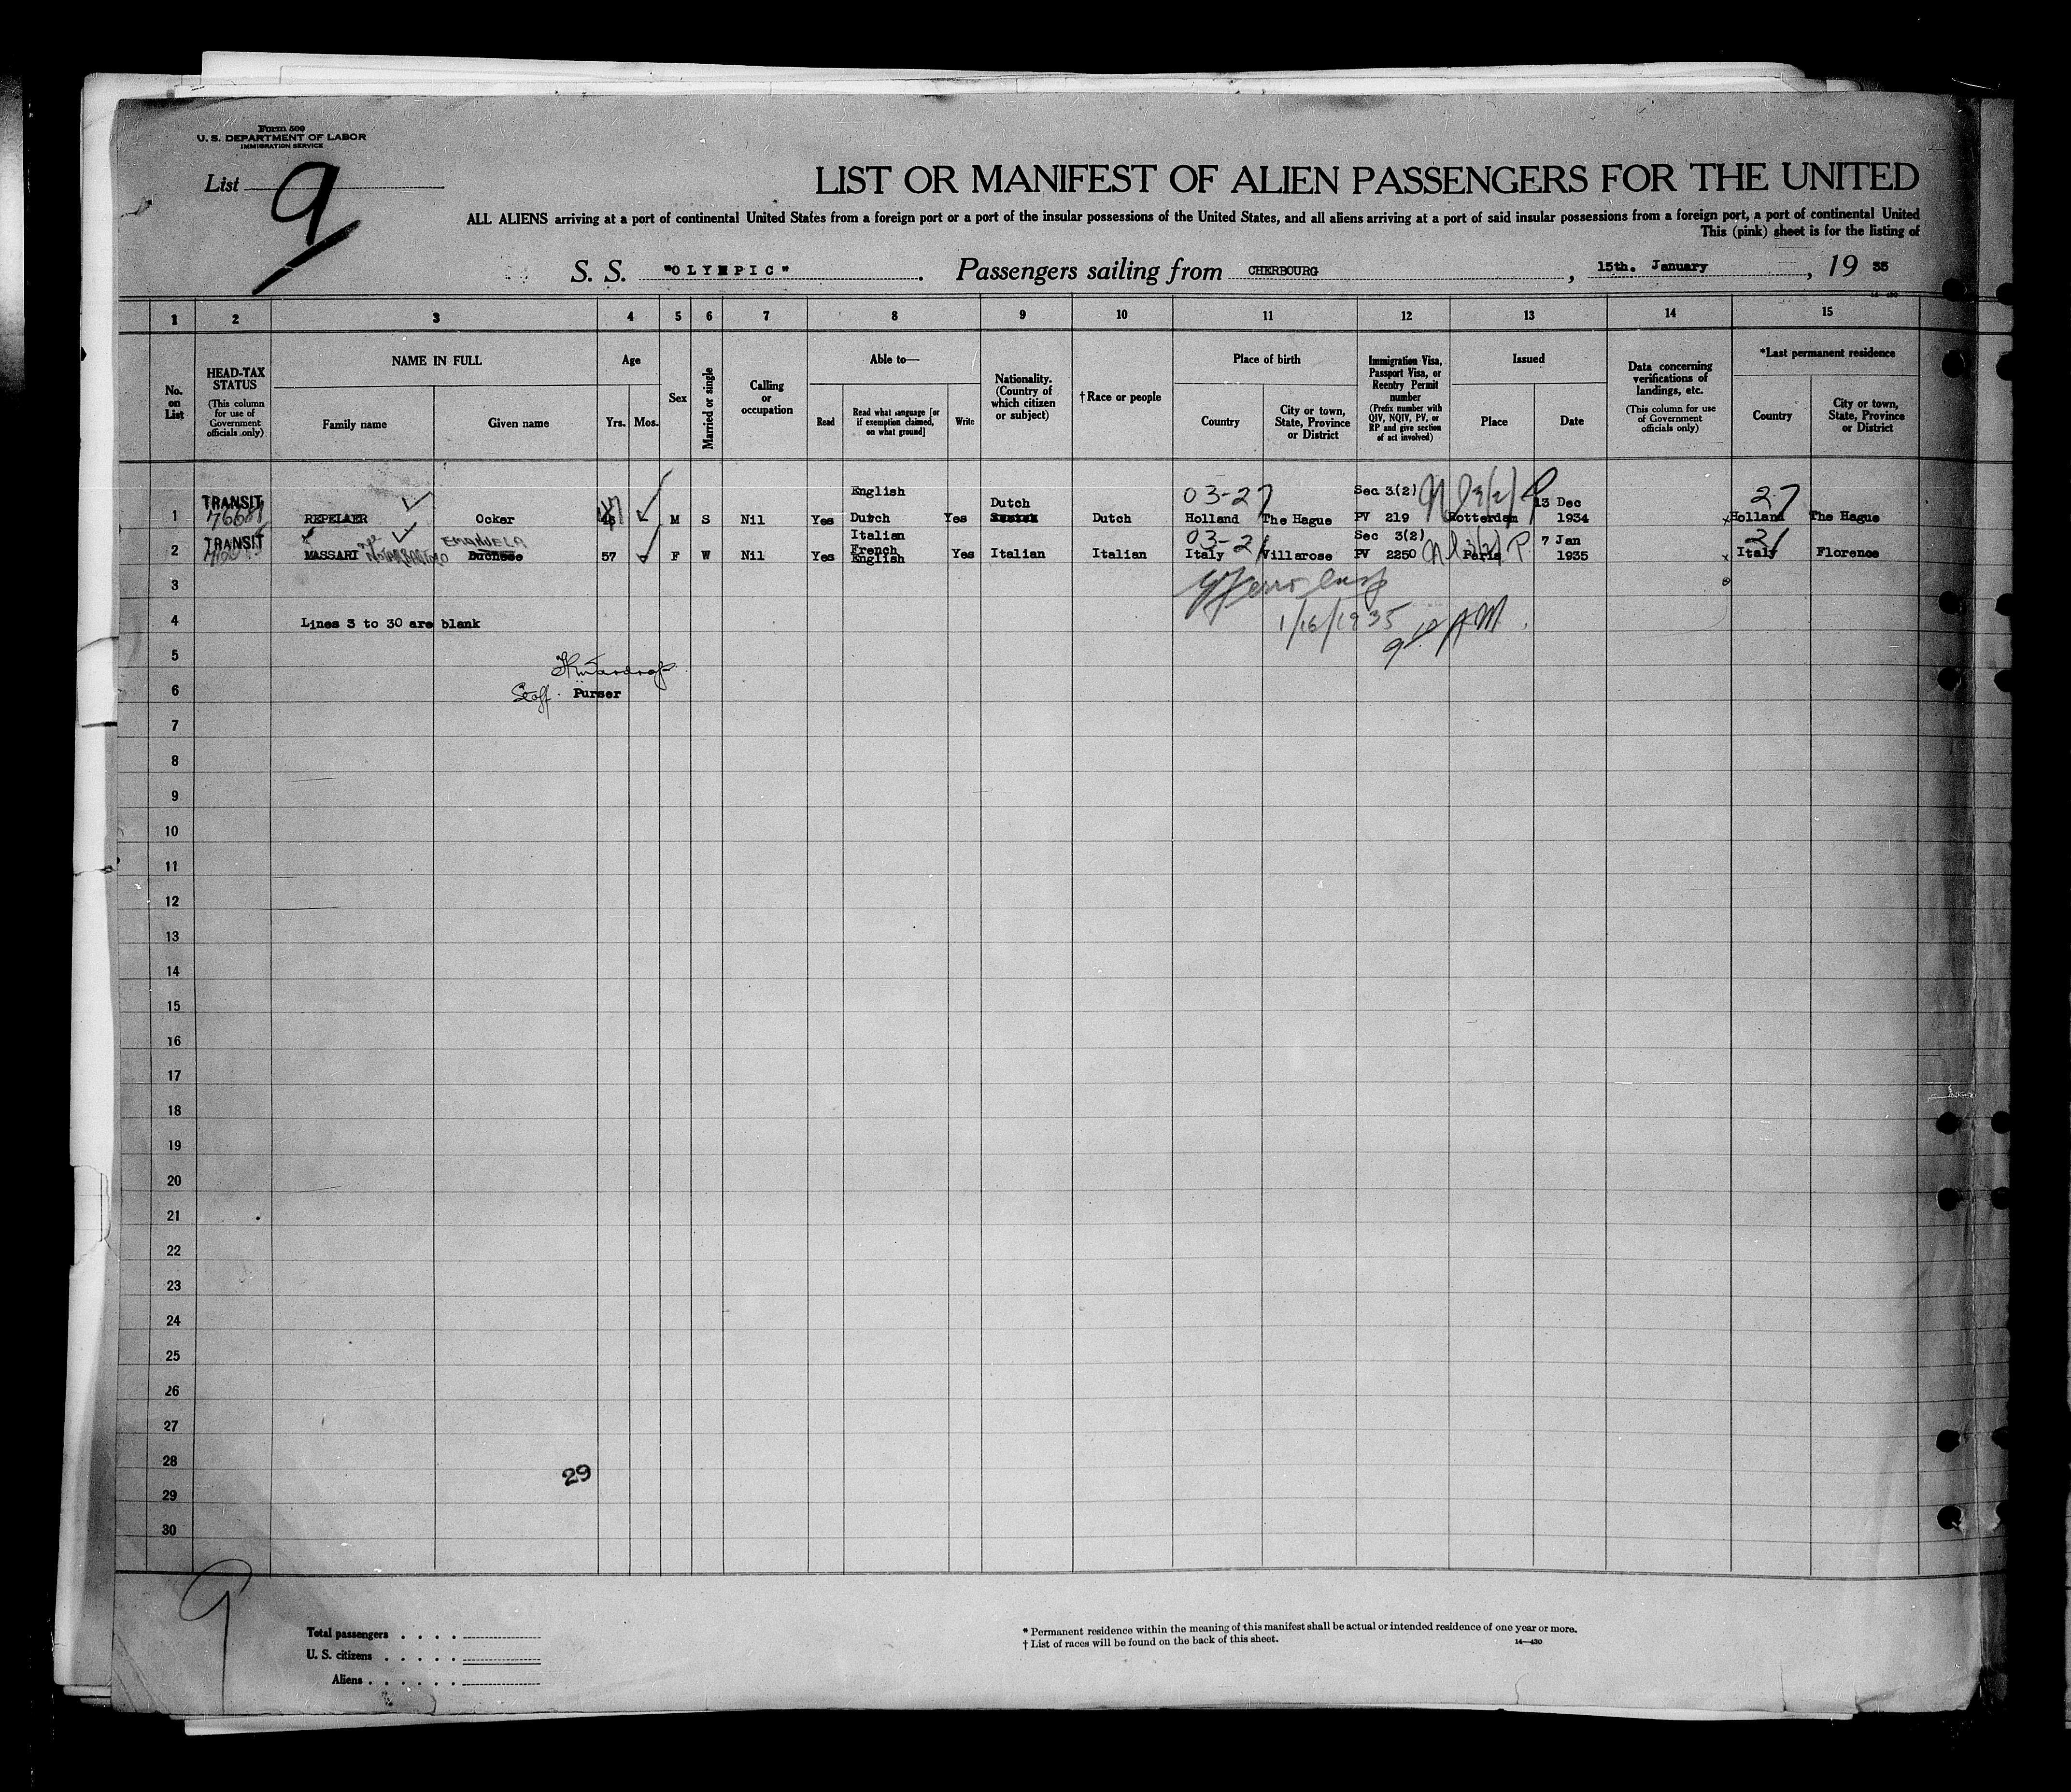 Form 500
U. S. DEPARTMENT OF LABOR
IMMIGRATION SERVICE
List 9
LIST OR MANIFEST OF ALIEN PASSENGERS FOR THE UNITED
ALL ALIENS arriving at a port of continental United States from a foreign port or a port of the insular possessions of the United States, and all aliens arriving at a port of said insular possessions from a foreign port, a port of continental United
This (pink) sheet is for the listing of
S. S. "OLYMPIC". Passengers sailing from CHERBOURG, 15th. January, 19 35
14—430
1 2 3 4 5 6 7 8 9 10 11 12 13 14 15
No. on List
HEAD-TAX STATUS (This column for use of Government officials only)
NAME IN FULL
Family name
Given name
Age
Yrs. Mos.
Sex
Married or single
Calling or occupation
Able to—
Read
Read what language [or if exemption claimed, on what ground]
Write
Nationality. (Country of which citizen or subject)
†Race or people
Place of birth
Country
City or town, State, Province or District
Immigration Visa, Passport Visa, or Reentry Permit number (Prefix number with QIV, NQIV, PV, or RP and give section of act involved)
Issued
Place
Date
Data concerning verifications of landings, etc. (This column for use of Government officials only)
*Last permanent residence
Country
City or town, State, Province or District
English 03-27 Sec 3(2) 27
TRANSIT Dutch 13 Dec
1 REPELAER Ocker M S Nil Yes Dutch Yes Dutch Holland The Hague PV 219 Rotterdam 1934 x Holland The Hague
TRANSIT EMANUELA Italian 03-21 Sec 3(2) 7 Jan 21
2 MASSARI Duchese 57 F W Nil Yes French English Yes Italian Italian Italy Villarose PV 2250 Paris 1935 x Italy Florence
3
4 Lines 3 to 30 are blank 1/16/1935 AM
5
6 Staff Purser
7
8
9
10
11
12
13
14
15
16
17
18
19
20
21
22
23
24
25
26
27
28
29
29
30
9
Total passengers
U. S. citizens
Aliens
* Permanent residence within the meaning of this manifest shall be actual or intended residence of one year or more.
† List of races will be found on the back of this sheet.
14—430